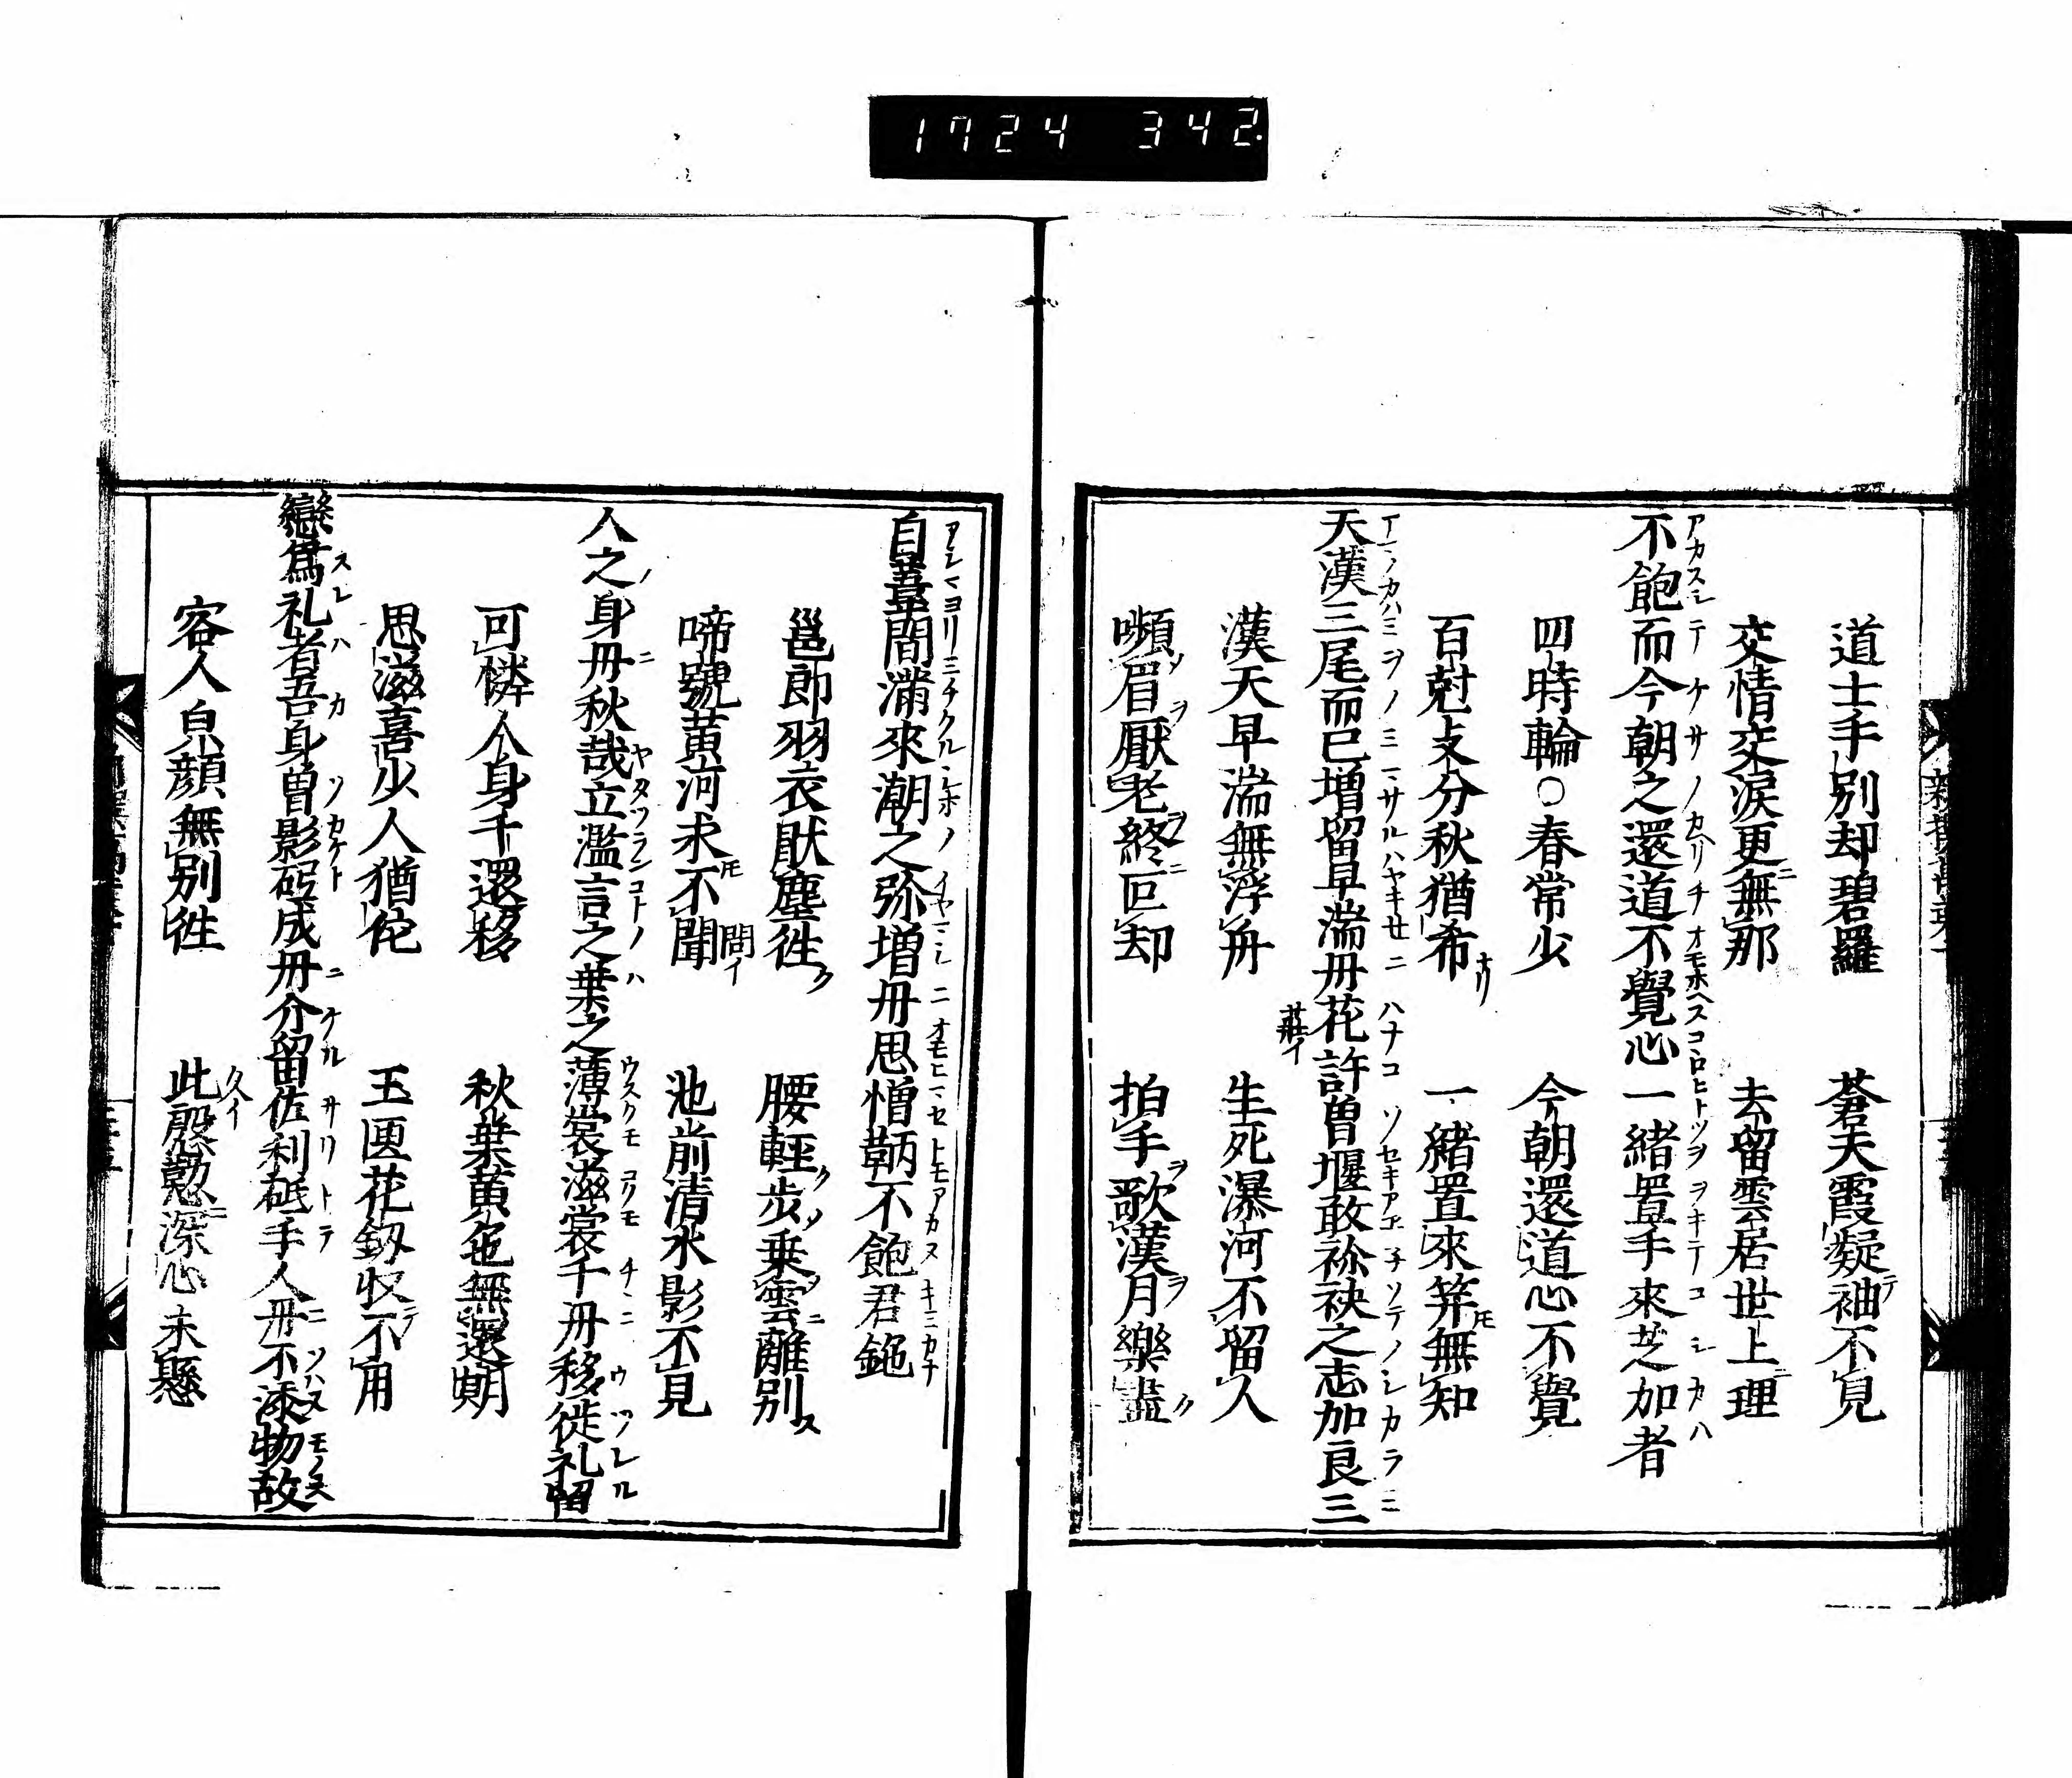 1724 342
道士手別却碧羅　蒼天霞凝袖不見
交情交涙更無那　去留雲居世上理
不飽而今朝之還道不覺心一緒置手來芝加者
四時輪○春常少　今朝還道心不覺
百尅支分秋猶希　一緒置來笇無知
天漢三尾而已増留早湍丹花許曽堰敢祢袂之志加良三
漢天早湍無浮舟　生死瀑河不留人
嚬眉厭老終叵却　拍手歌漢月樂盡
自葦間滿來潮之弥増丹思憎鞆不飽君鉇
邕郎羽衣猒塵徃　腰輕歩乗雲離別
啼號黄河求不聞　池前清水影不見
人之身丹秋哉立濫言之葉之薄裳滋裳千丹移徙礼留
可憐人身千還移　秋葉黄色無還期
思滋喜少人猶佗　玉匣花釼收不用
戀爲礼者吾身曽影砥成丹介留佐利砥手人丹不添物故
容人皃顔無別徃　此慇懃深心未懸